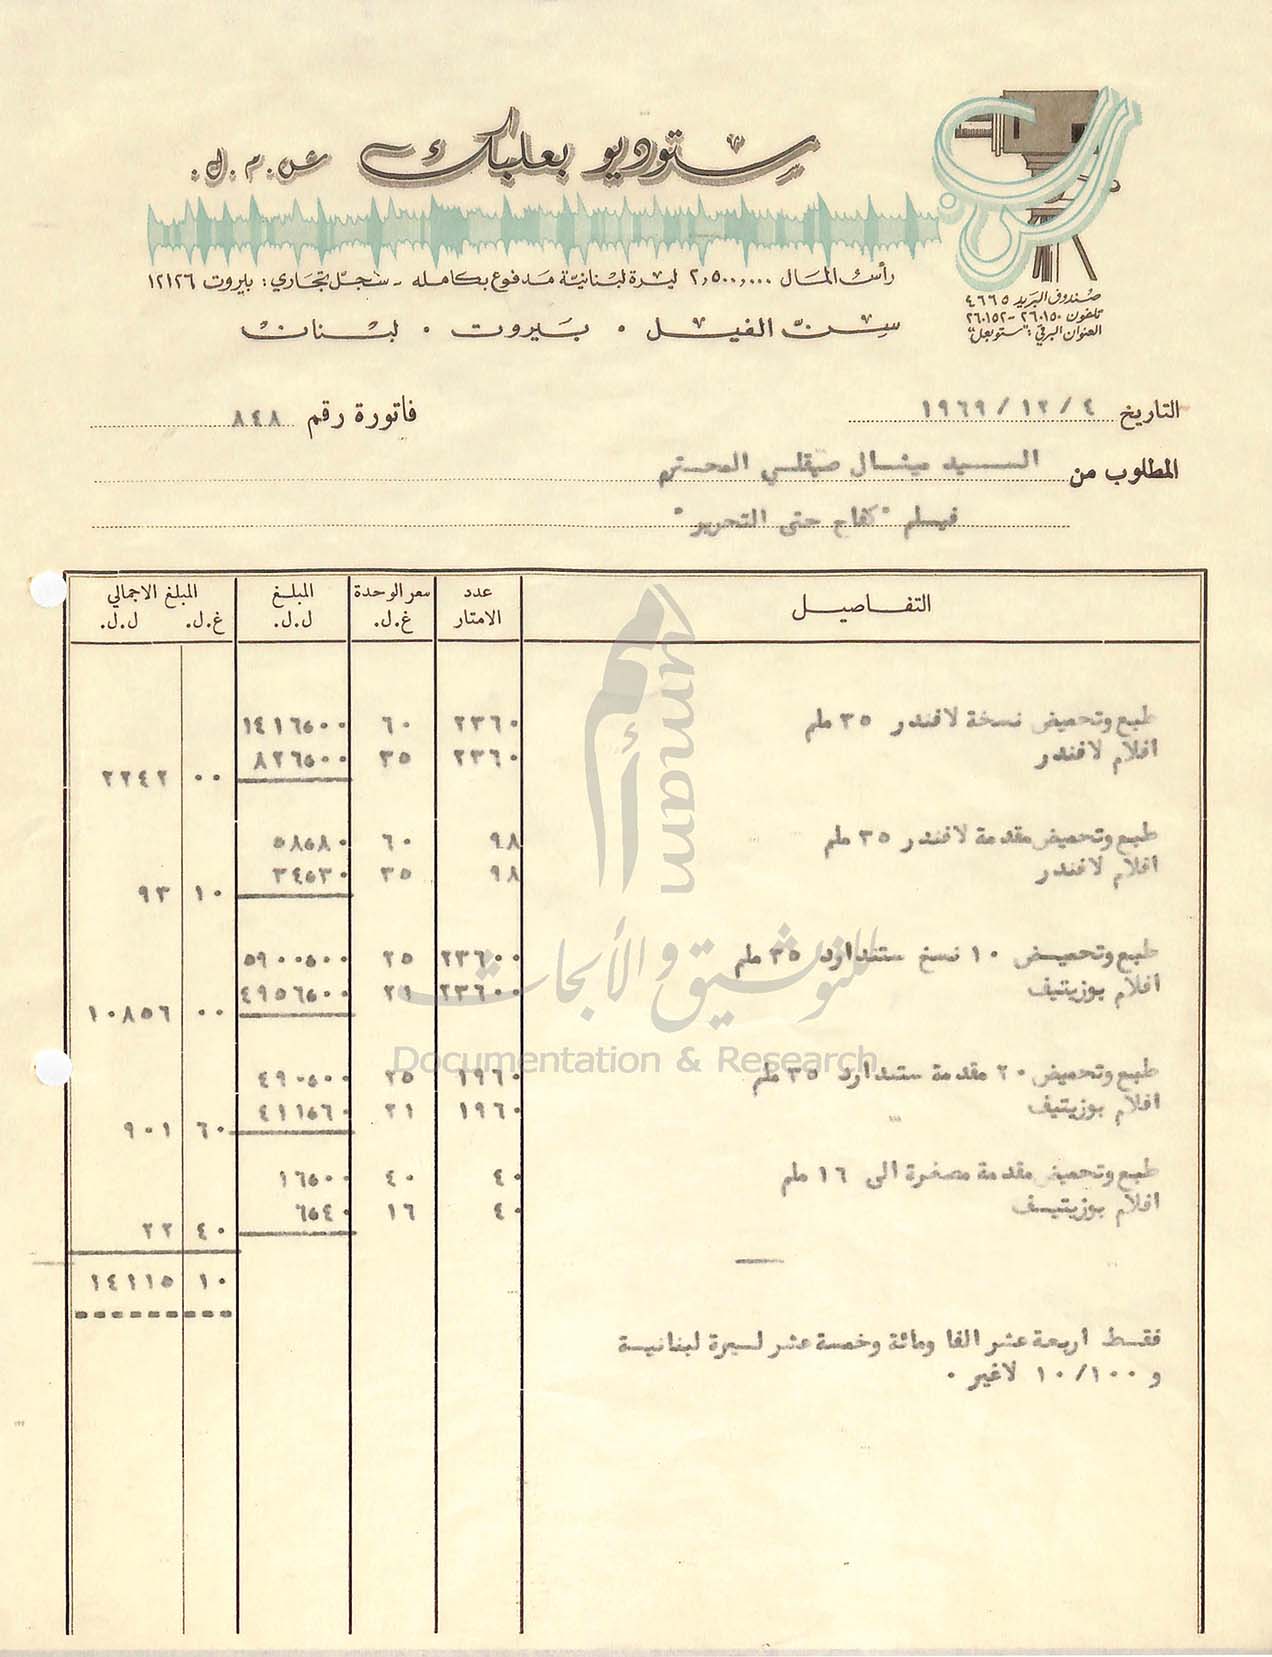 ستوديو بعلبك ش.م.ل.
رأسمال المال ٢,٥٠٠,٠٠٠ ليرة لبنانيّة مدفوع بكامله - سجلّ تجاري: بيروت ١٢١٢٦
سنّ الفيل . بيروت . لبنان
صندوق البريد ٤٦٦٥
تلفون ٢٦٠١٥٠-٢٦٠١٥٢
العنوان البرقي: "ستوبعل"
التاريخ ٤ / ١٢ / ١٩٦٩ فاتورة رقم ٨٤٨
المطلوب من السيد ميشال صيقلي المحترم
فيلم "كفاح حتى التحرير"
التفاصيل عدد الامتار سعر الوحدة غ.ل. المبلغ ل.ل. المبلغ الاجمالي غ.ل. ل.ل.
طبع وتحميض نسخة لافندر ٣٥ ملم ٢٣٦٠ ٦٠ ١٤١٦٥٠٠
افلام لافندر ٢٣٦٠ ٣٥ ٨٢٦٥٠٠
٠٠ ٢٢٤٢
طبع وتحميض مقدمة لافندر ٣٥ ملم ٩٨ ٦٠ ٥٨٥٨٠
افلام لافندر ٩٨ ٣٥ ٣٤٥٣٠
١٠ ٩٣
طبع وتحميض ١٠ نسخ ستندارد ٣٥ ملم ٢٣٦٠٠ ٢٥ ٥٩٠٠٥٠٠
افلام بوزيتيف ٢٣٦٠٠ ٢١ ٤٩٥٦٥٠٠
٠٠ ١٠٨٥٦
طبع وتحميض ٢٠ مقدمة ستندارد ٣٥ ملم ١٩٦٠ ٢٥ ٤٩٠٥٠٠
افلام بوزيتيف ١٩٦٠ ٢١ ٤١١٥٦٠
٦٠ ٩٠١
طبع وتحميض مقدمة مصغرة الى ١٦ ملم ٤٠ ٤٠ ١٦٥٠٠
افلام بوزيتيف ٤٠ ١٦ ٦٥٤٠
٤٠ ٢٢
١٠ ١٤١١٥
فقط اربعة عشر الفا ومائة وخمسة عشر ليرة لبنانية
و ١٠/١٠٠ لاغير .
أمم umam
للتوثيق والأبحاث
Documentation & Research